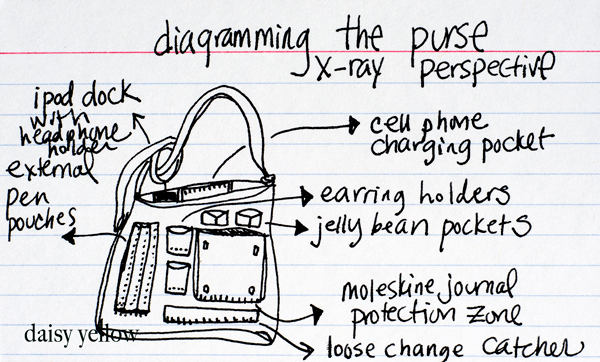 diagramming the purse
x-ray perspective
ipod dock
with
headphone
holder
external
pen
pouches
cell phone
charging pocket
earring holders
jelly bean pockets
moleskine journal
protection zone
loose change catcher
daisy yellow